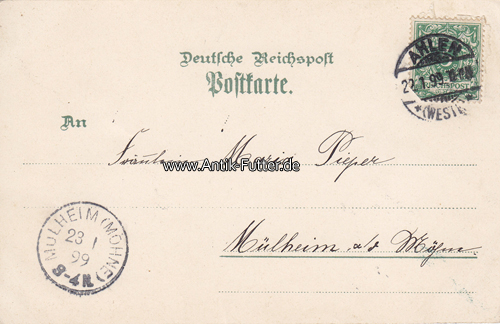 Deutsche Reichspost
Postkarte.
AHLEN
22.1.99
(WESTF.)
REICHSPOST
An
Fräulein Maria Pieper
www.Antik-Futter.de
Mülheim a/d Möhne
MÜLHEIM (MÖHNE)
23 1
99
8-9N.